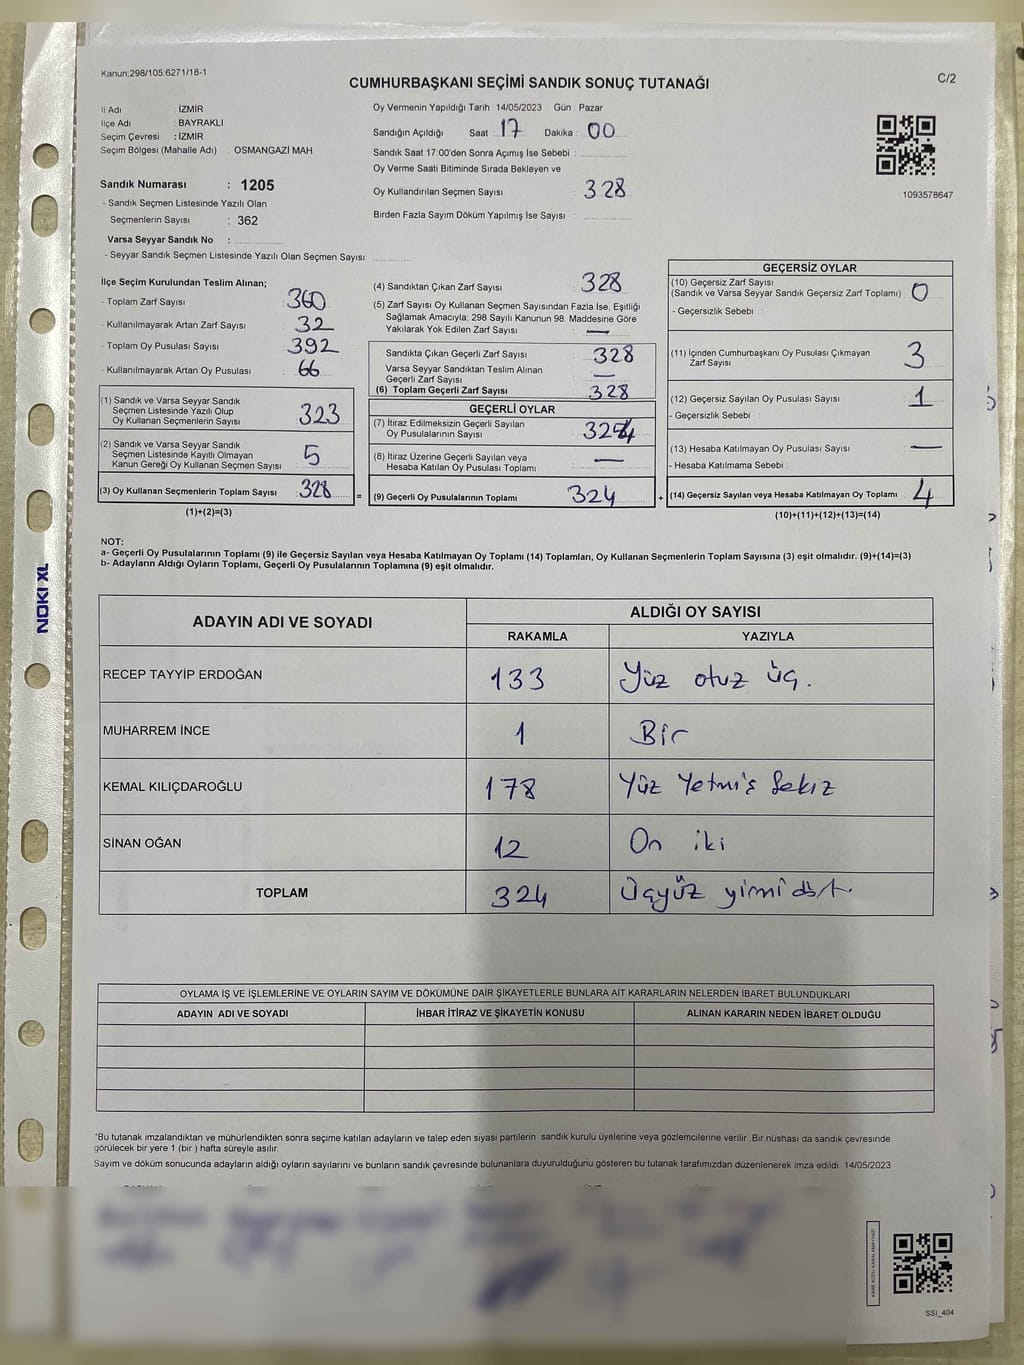 Kanun;298/105;6271/18-1
C/2
CUMHURBAŞKANI SEÇİMİ SANDIK SONUÇ TUTANAĞI
İl Adı : İZMİR
İlçe Adı : BAYRAKLI
Seçim Çevresi : İZMİR
Seçim Bölgesi (Mahalle Adı) : OSMANGAZİ MAH.
Sandık Numarası : 1205
- Sandık Seçmen Listesinde Yazılı Olan
Seçmenlerin Sayısı : 362
Varsa Seyyar Sandık No :
- Seyyar Sandık Seçmen Listesinde Yazılı Olan Seçmen Sayısı:
Oy Vermenin Yapıldığı Tarih 14/05/2023 Gün : Pazar
Sandığın Açıldığı Saat : 17 Dakika : 00
Sandık Saat 17:00'den Sonra Açımış İse Sebebi :
Oy Verme Saati Bitiminde Sırada Bekleyen ve
Oy Kullandırılan Seçmen Sayısı : 328
Birden Fazla Sayım Döküm Yapılmış İse Sayısı :
1093578647
İlçe Seçim Kurulundan Teslim Alınan;
- Toplam Zarf Sayısı : 360
- Kullanılmayarak Artan Zarf Sayısı : 32
- Toplam Oy Pusulası Sayısı : 392
- Kullanılmayarak Artan Oy Pusulası : 66
(1) Sandık ve Varsa Seyyar Sandık
Seçmen Listesinde Yazılı Olup
Oy Kullanan Seçmenlerin Sayısı : 323
(2) Sandık ve Varsa Seyyar Sandık
Seçmen Listesinde Kayıtlı Olmayan
Kanun Gereği Oy Kullanan Seçmen Sayısı : 5
(3) Oy Kullanan Seçmenlerin Toplam Sayısı : 328
(1)+(2)=(3)
=
(4) Sandıktan Çıkan Zarf Sayısı : 328
(5) Zarf Sayısı Oy Kullanan Seçmen Sayısından Fazla İse, Eşitliği
Sağlamak Amacıyla; 298 Sayılı Kanunun 98. Maddesine Göre
Yakılarak Yok Edilen Zarf Sayısı : —
Sandıkta Çıkan Geçerli Zarf Sayısı : 328
Varsa Seyyar Sandıktan Teslim Alınan
Geçerli Zarf Sayısı : —
(6) Toplam Geçerli Zarf Sayısı : 328
GEÇERLİ OYLAR
(7) İtiraz Edilmeksizin Geçerli Sayılan
Oy Pusulalarının Sayısı : 324
(8) İtiraz Üzerine Geçerli Sayılan veya
Hesaba Katılan Oy Pusulası Toplamı : —
(9) Geçerli Oy Pusulalarının Toplamı : 324
+
GEÇERSİZ OYLAR
(10) Geçersiz Zarf Sayısı
(Sandık ve Varsa Seyyar Sandık Geçersiz Zarf Toplamı) : 0
- Geçersizlik Sebebi :
(11) İçinden Cumhurbaşkanı Oy Pusulası Çıkmayan
Zarf Sayısı : 3
(12) Geçersiz Sayılan Oy Pusulası Sayısı : 1
- Geçersizlik Sebebi :
(13) Hesaba Katılmayan Oy Pusulası Sayısı : —
- Hesaba Katılmama Sebebi :
(14) Geçersiz Sayılan veya Hesaba Katılmayan Oy Toplamı : 4
(10)+(11)+(12)+(13)=(14)
NOT:
a- Geçerli Oy Pusulalarının Toplamı (9) ile Geçersiz Sayılan veya Hesaba Katılmayan Oy Toplamı (14) Toplamları, Oy Kullanan Seçmenlerin Toplam Sayısına (3) eşit olmalıdır. (9)+(14)=(3)
b- Adayların Aldığı Oyların Toplamı, Geçerli Oy Pusulalarının Toplamına (9) eşit olmalıdır.
NOKI XL
ADAYIN ADI VE SOYADI ALDIĞI OY SAYISI
RAKAMLA YAZIYLA
RECEP TAYYİP ERDOĞAN 133 Yüz otuz üç.
MUHARREM İNCE 1 Bir
KEMAL KILIÇDAROĞLU 178 Yüz Yetmiş Sekiz
SİNAN OĞAN 12 On iki
TOPLAM 324 Üçyüz yirmi dört.
OYLAMA İŞ VE İŞLEMLERİNE VE OYLARIN SAYIM VE DÖKÜMÜNE DAİR ŞİKAYETLERLE BUNLARA AİT KARARLARIN NELERDEN İBARET BULUNDUKLARI
ADAYIN ADI VE SOYADI İHBAR İTİRAZ VE ŞİKAYETİN KONUSU ALINAN KARARIN NEDEN İBARET OLDUĞU
*Bu tutanak imzalandıktan ve mühürlendikten sonra seçime katılan adayların ve talep eden siyasi partilerin sandık kurulu üyelerine veya gözlemcilerine verilir. Bir nüshası da sandık çevresinde
görülecek bir yere 1 (bir ) hafta süreyle asılır.
Sayım ve döküm sonucunda adayların aldığı oyların sayılarını ve bunların sandık çevresinde bulunanlara duyurulduğunu gösteren bu tutanak tarafımızdan düzenlenerek imza edildi. 14/05/2023
KARE KODU KARALAMAYINIZ!
SSI_404